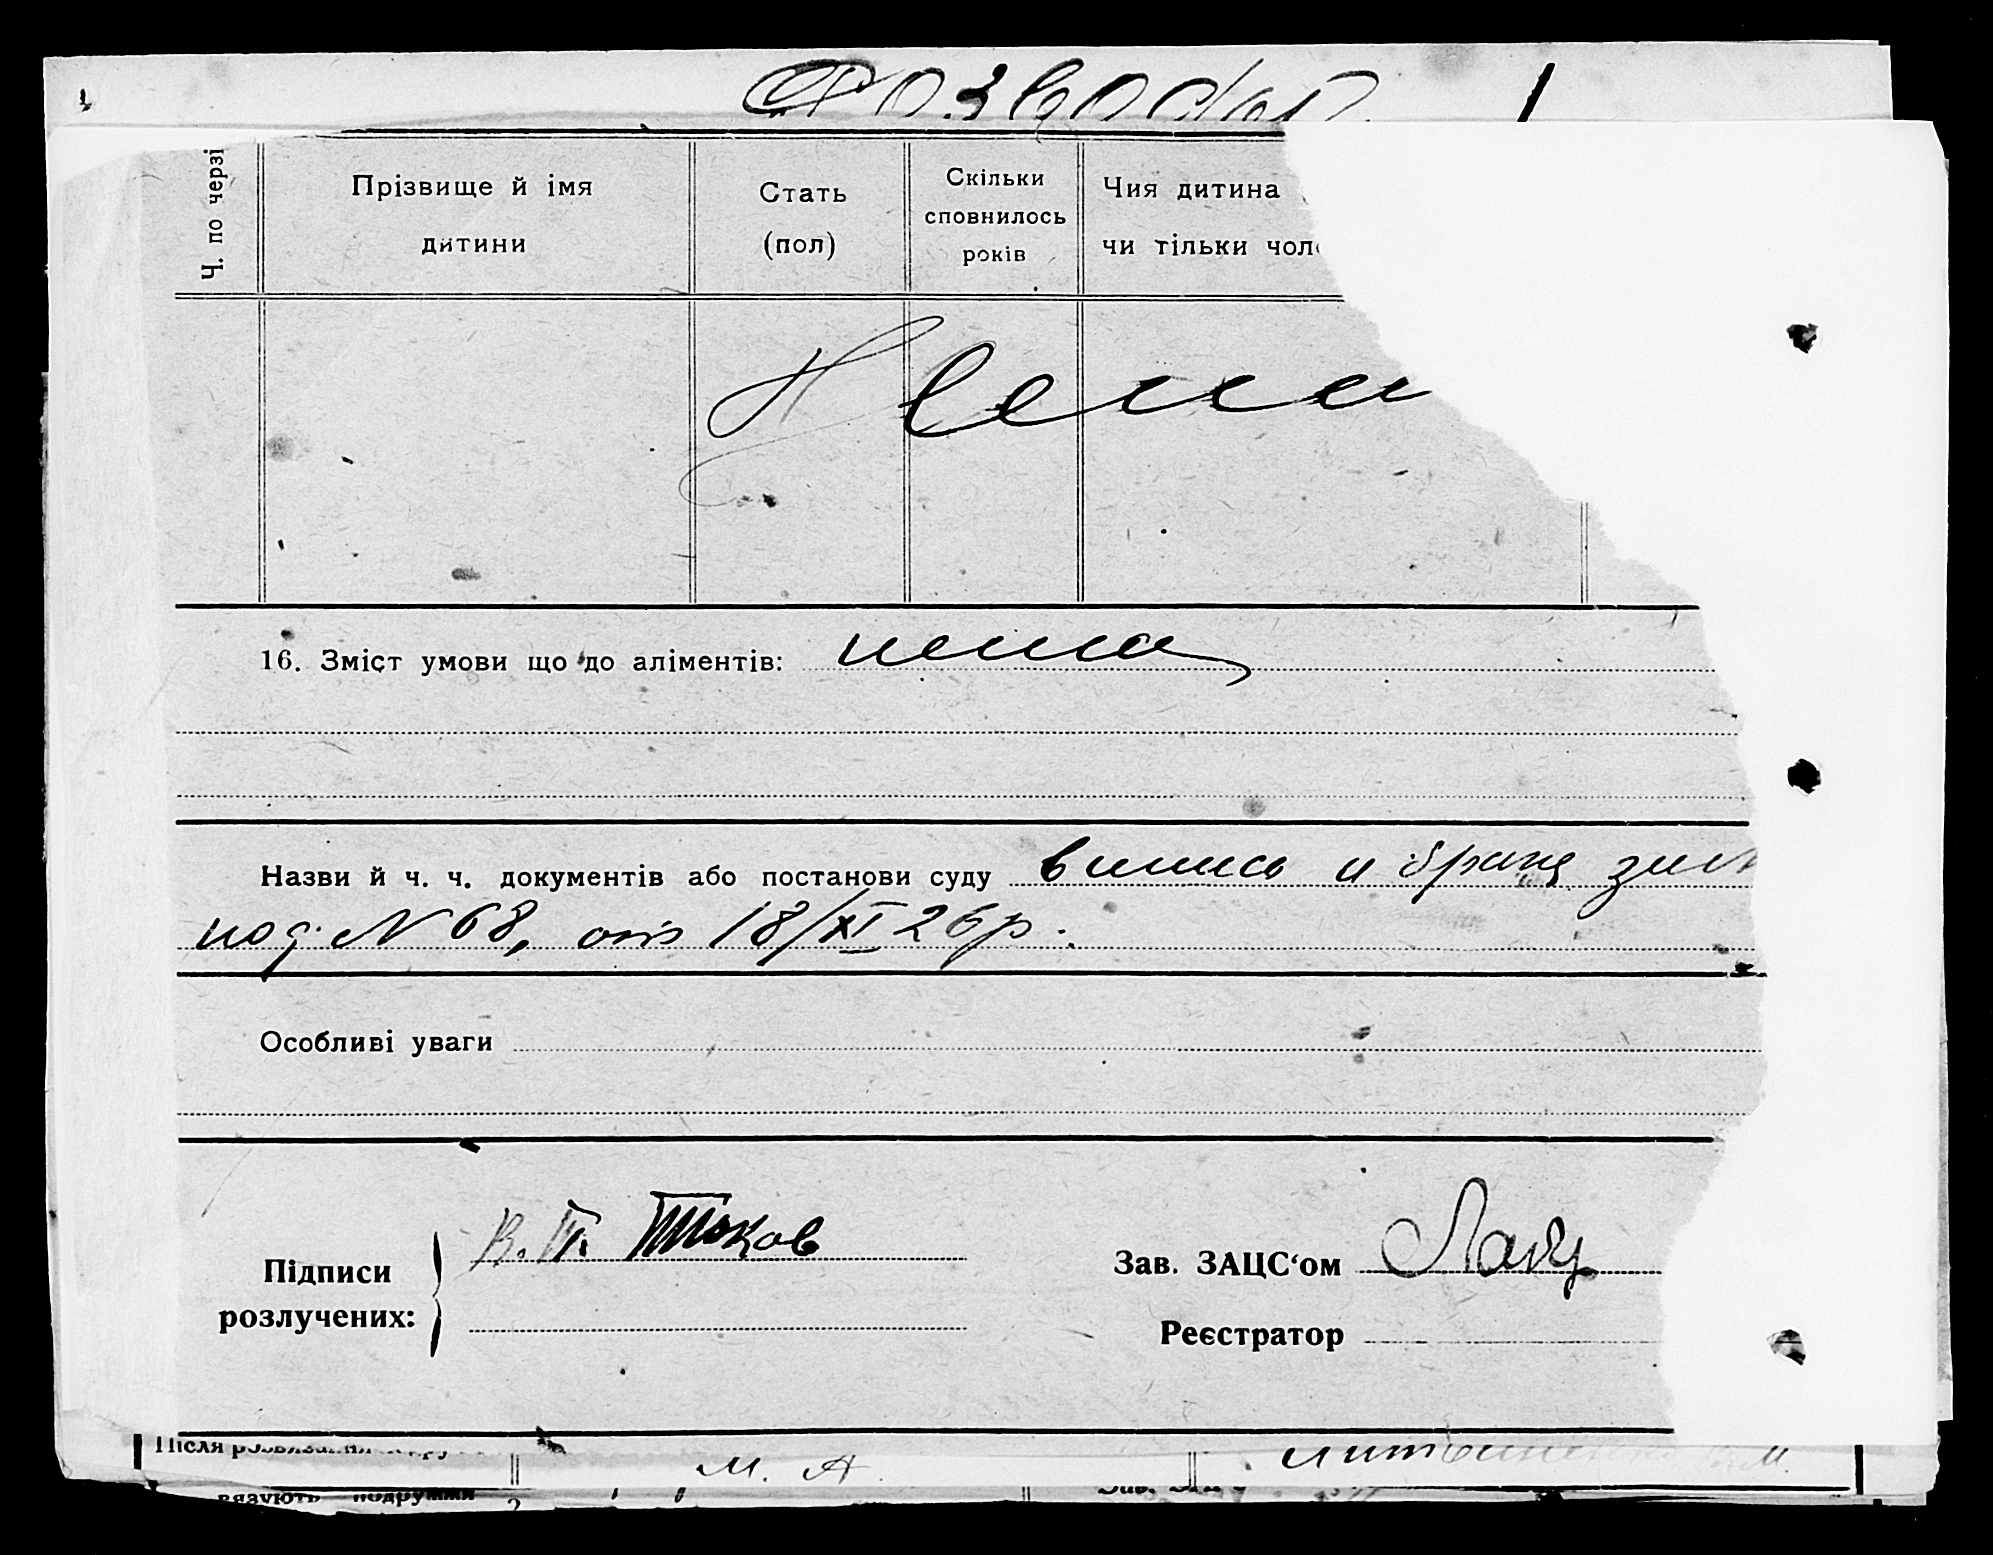 Ч. по черзі
Прізвище й імя
дитини
Стать
(пол)
Скільки
сповнилось
років
Чия дитина
чи тільки чол
Нема
16. Зміст умови що до аліментів: нема
Назви й ч. ч. документів або постанови суду випись
под № 68, от 18/XI 26 р.
Особливі уваги
Підписи
розлучених:
В. П.
Зав. ЗАЦС‘ом
Реєстратор
Після
М. А.
вязують подружжя